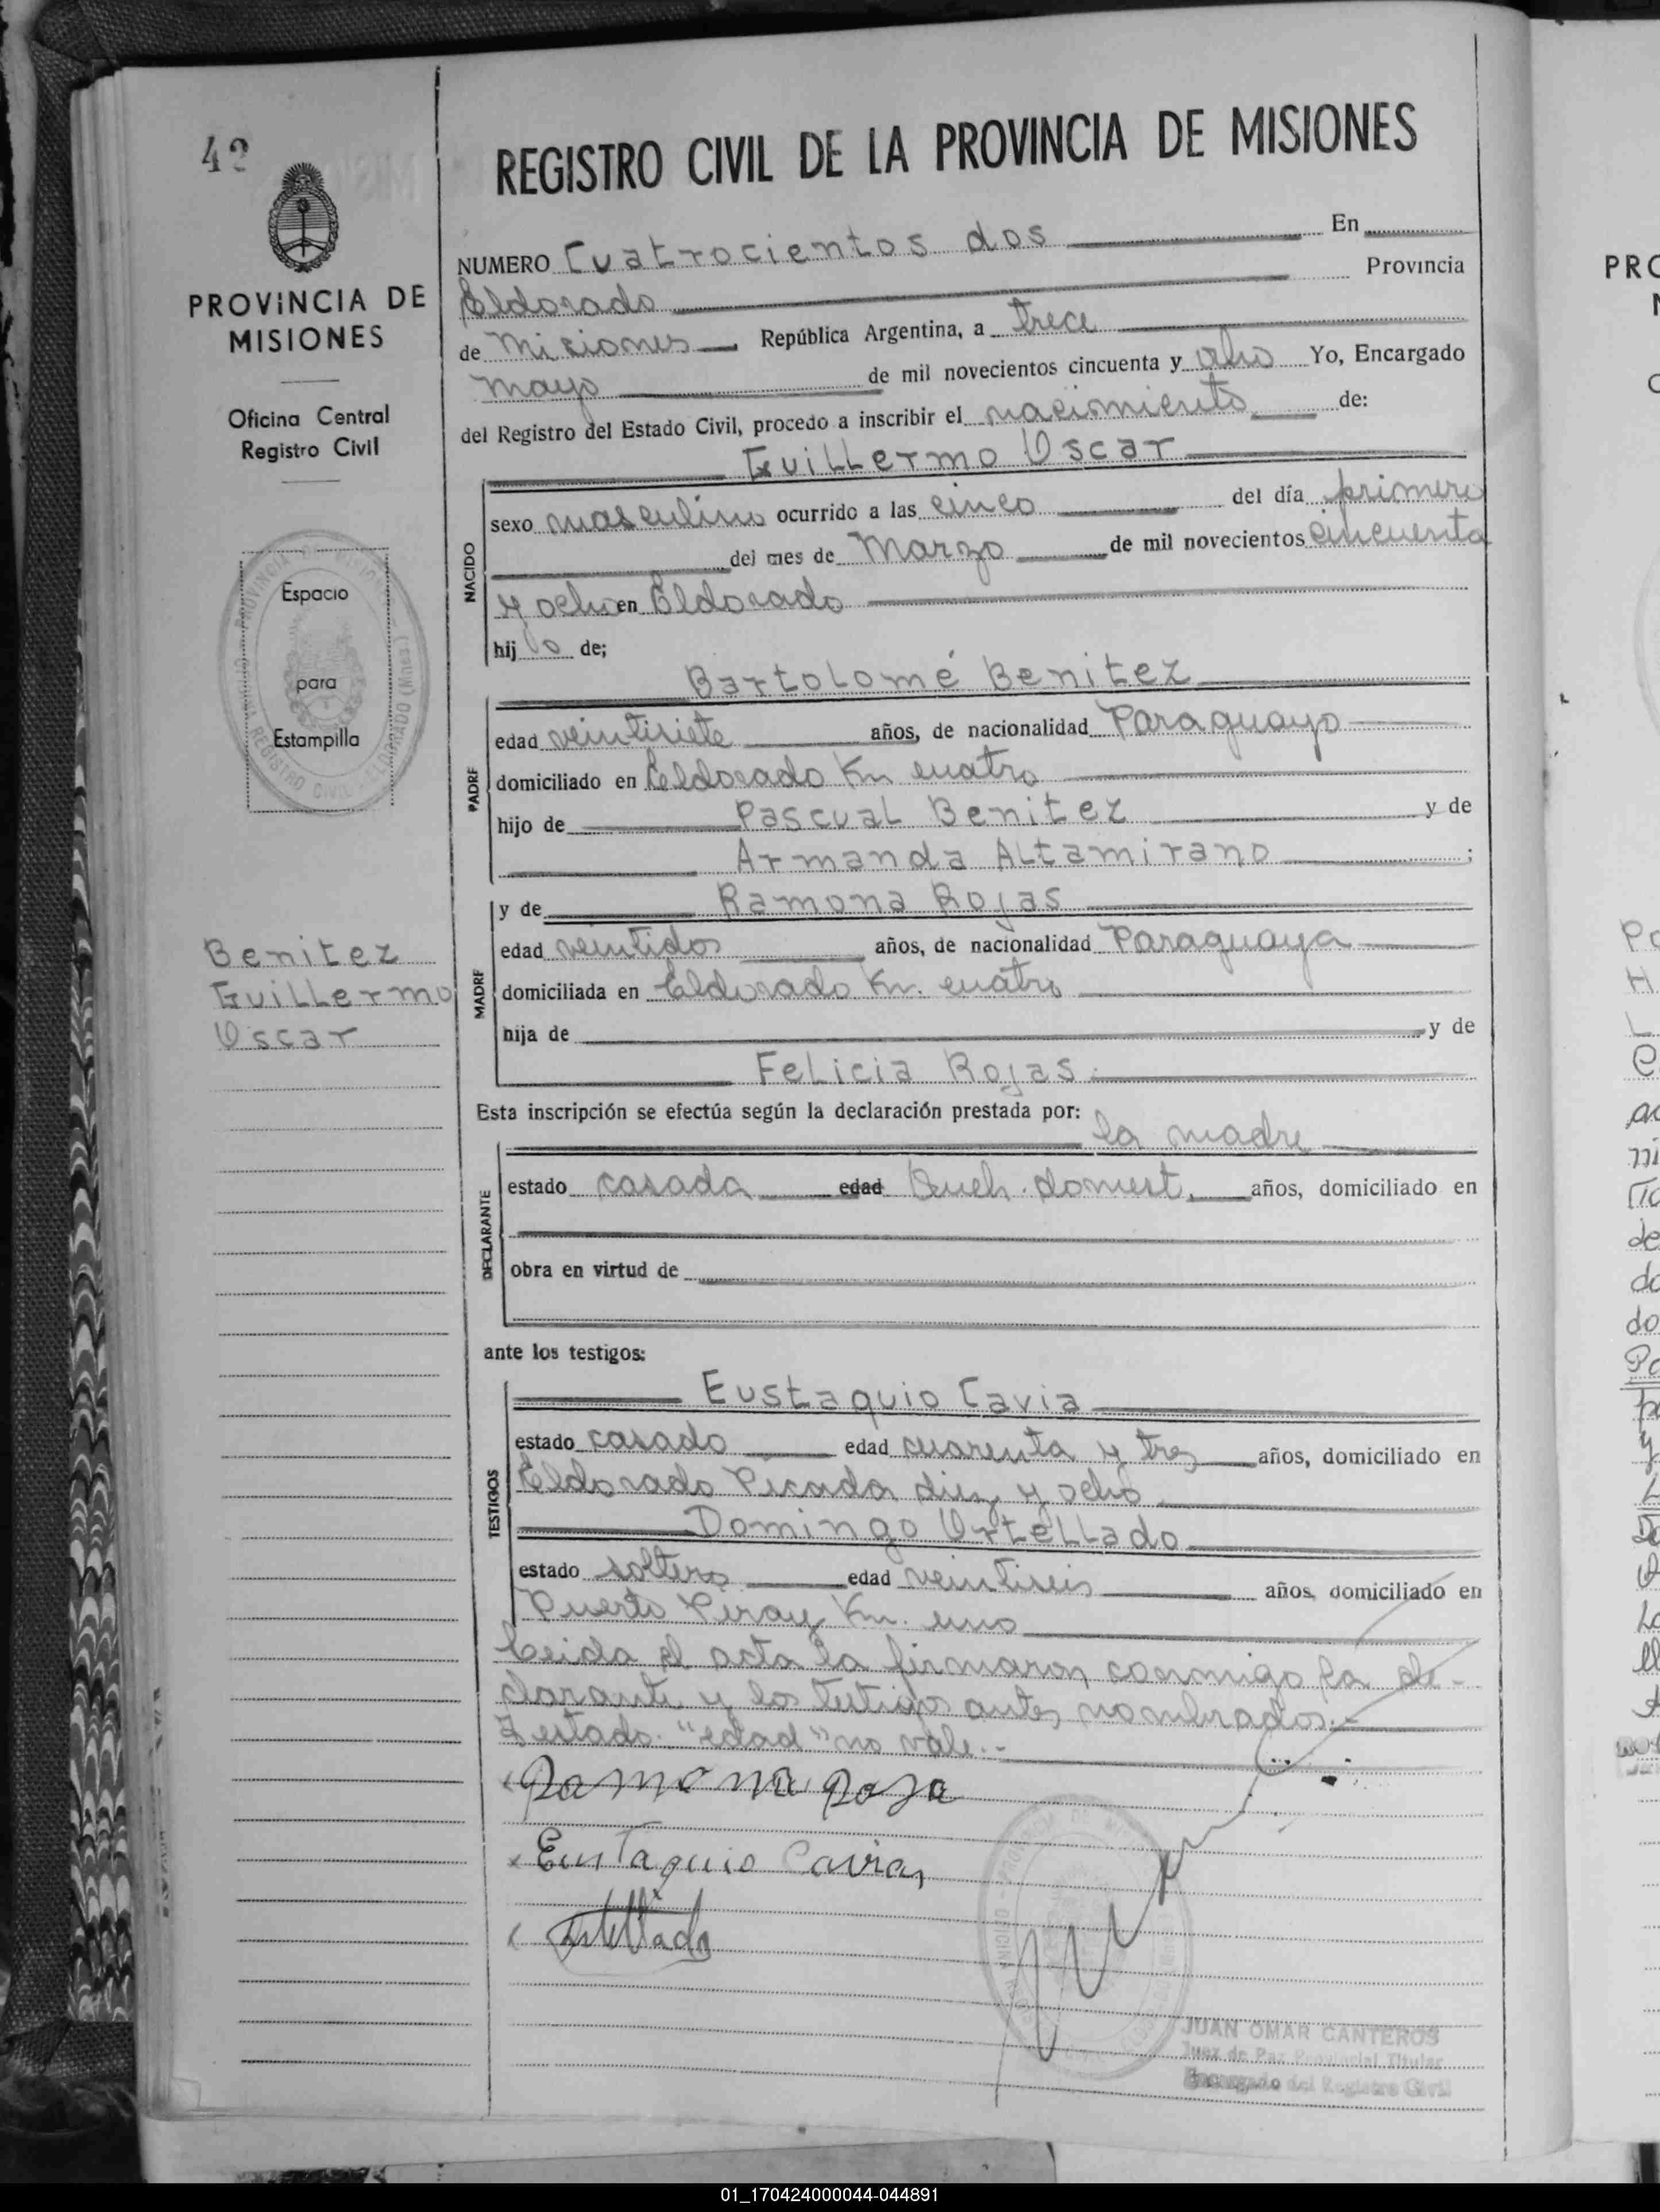 42
PROVINCIA DE
MISIONES
Oficina Central
Registro Civil
Espacio
para
Estampilla
Benitez
Guillermo
Oscar
REGISTRO CIVIL DE LA PROVINCIA DE MISIONES
NUMERO Cuatrocientos dos En
Eldorado Provincia
de Misiones República Argentina, a trece
mayo de mil novecientos cincuenta y ocho Yo, Encargado
del Registro del Estado Civil, procedo a inscribir el nacimiento de:
Guillermo Oscar
NACIDO
sexo masculino ocurrido a las cinco del día primero
del mes de Marzo de mil novecientos cincuenta
y ocho en Eldorado
hij o de;
Bartolomé Benitez
PADRE
edad veintisiete años, de nacionalidad Paraguayo
domiciliado en Eldorado Km cuatro
hijo de Pascual Benitez y de
Armanda Altamirano ;
y de Ramona Rojas
MADRE
edad veintidos años, de nacionalidad Paraguaya
domiciliada en Eldorado Km. cuatro
hija de y de
Felicia Rojas.
Esta inscripción se efectúa según la declaración prestada por:
la madre
DECLARANTE
estado casada edad Queh. domest. años, domiciliado en
obra en virtud de
ante los testigos:
Eustaquio Cavia
TESTIGOS
estado casado edad cuarenta y tres años, domiciliado en
Eldorado Picada diez y ocho
Domingo Ortellado
estado soltero edad veintiseis años, domiciliado en
Puerto Piray Km. uno
Leida el acta la firmaron conmigo la de-
clarante y los testigos antes nombrados.-
Testado: "edad" no vale.-
Ramona Roja
Eustaquio Cavia
Ortellado
JUAN OMAR CANTEROS
Juez de Paz Provincial Titular
Encargado del Registro Civil
01_170424000044-044891